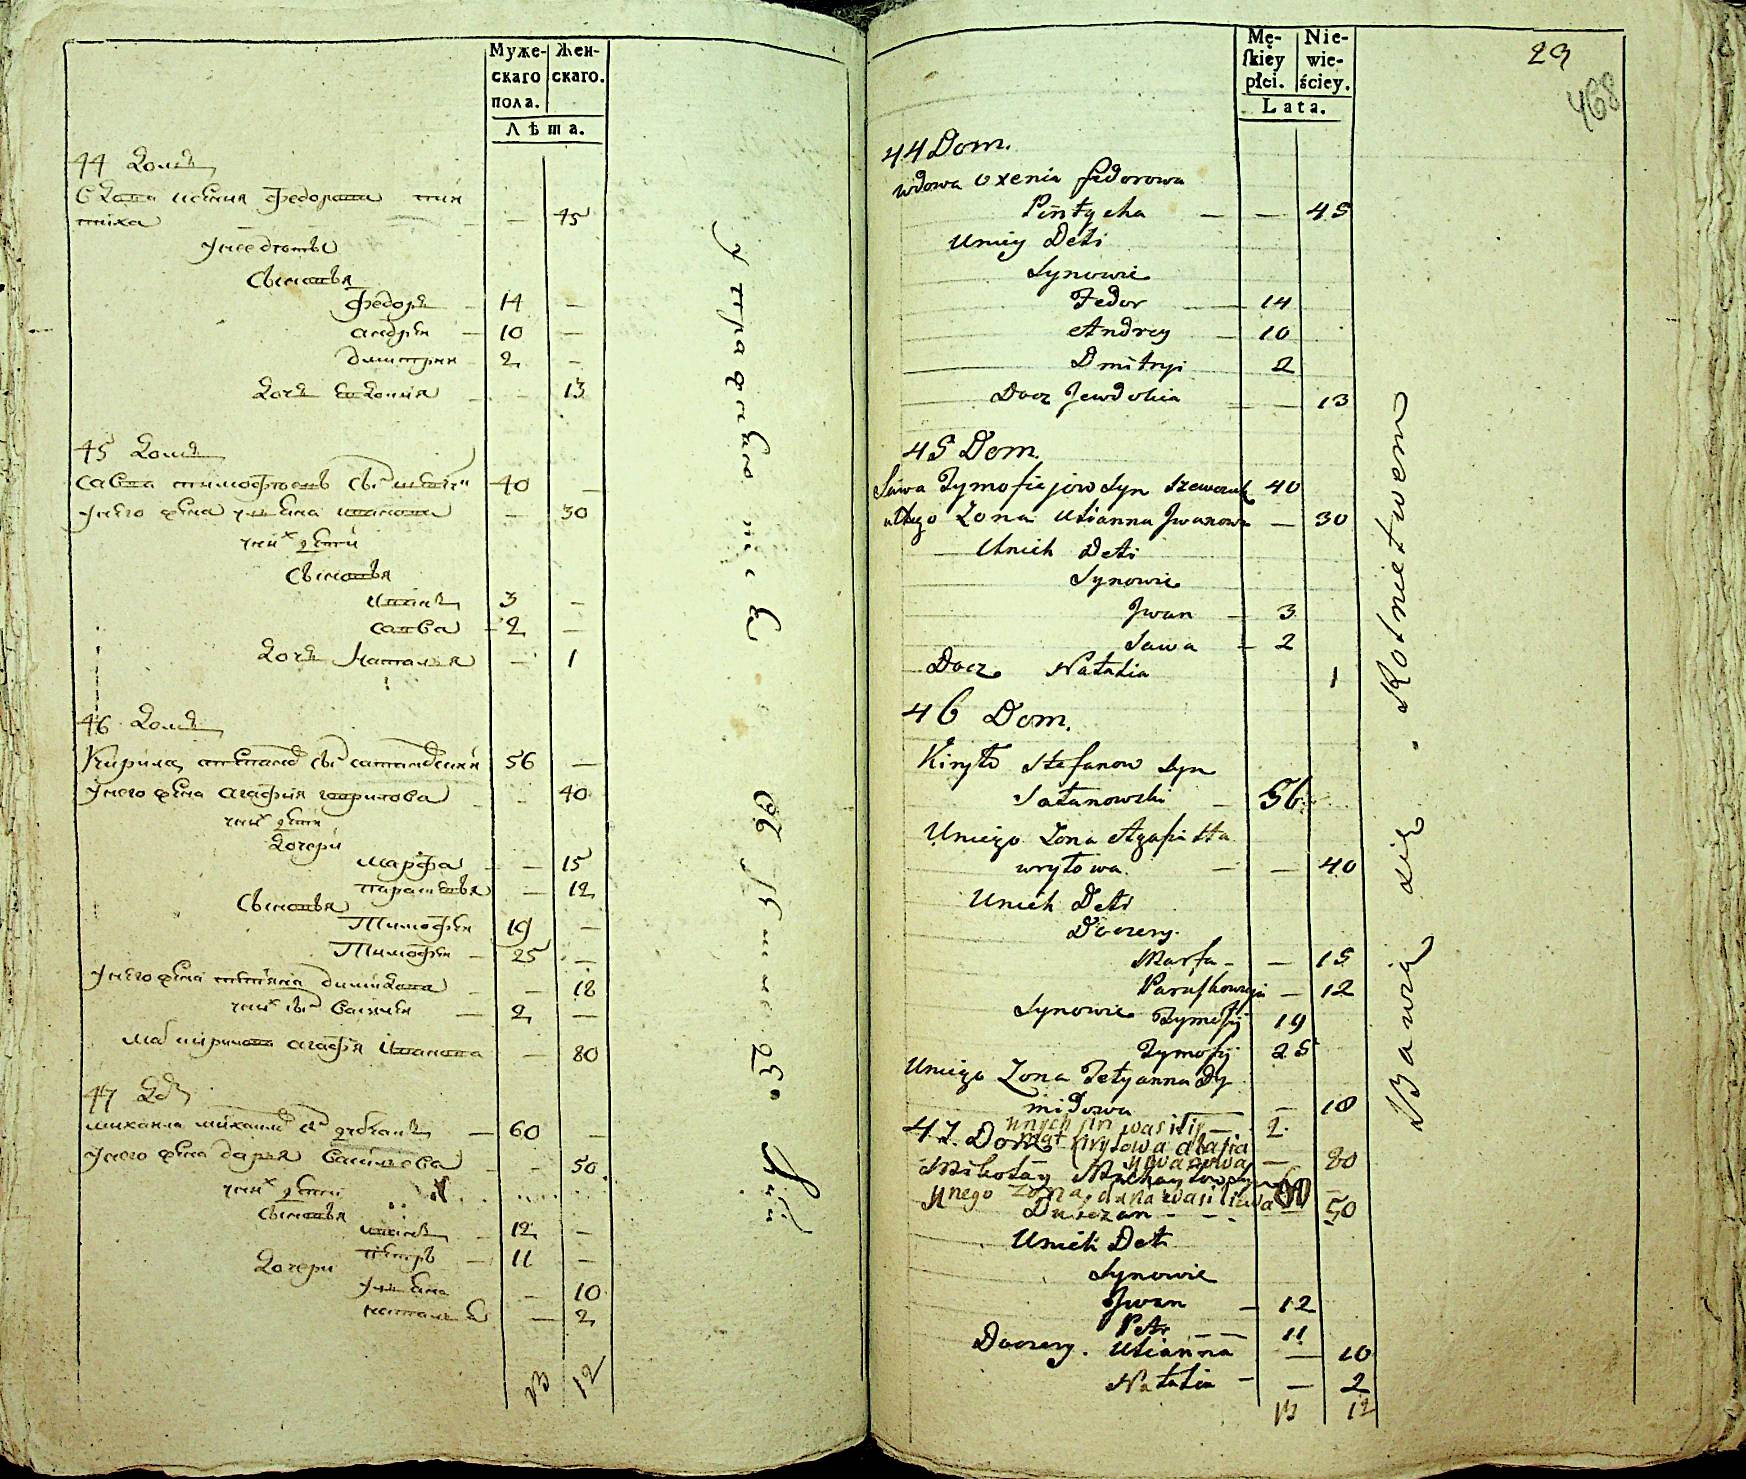 Муже-
скаго
пола.
Жен-
скаго.
Лѣта.
44 Домъ
Вдова Ксения Федорова Пин
тиха — 45
У нее дѣти
Сыновья
Федоръ — 14 —
Андрѣй — 10 —
Дмитрий 2 —
Дочь Евдокия — 13
45 Домъ
Савва Тимофѣевъ сынъ 40 —
У него жена Улияна Иванова — 30
У них дѣти
Сыновья
Иванъ 3 —
Савва — 2 —
Дочь Наталья — 1
46 Домъ
Кирила Степановъ сынъ Сатановский 56 —
У него жена Агафия Гаврилова — 40
У них дѣти
Дочери
Марфа — 15
Парасковья — 12
Сыновья
Тимофѣй 19 —
Тимофѣй — 25 —
У него жена Тетияна Димидова — 18
У них сынъ Василий — 2 —
Мать Кирилова Агафия Иванова — 80
47 Домъ
Михаила Михайловъ сынъ — 60 —
У него жена Дарья Васильева — 50
У них дѣти
Сыновья
Иванъ 12 —
Петръ — 11 —
Дочери
Улияна — 10
Наталья — 2
13 12
Mę-
skiey
płci.
Nie-
wie-
ściey.
Lata.
29
468
44 Dom.
wdowa Oxenia Fedorowa
Pintycha — — 45
Uniey Deti
Synowie
Fedor — 14
Andrey — 10
Dmitryi 2
Docz Jewdokia — 13
45 Dom.
Sawa Tymofiejow Syn Szewczuk 40
Zona Ulianna Jwanowa — 30
Unich Deti
Synowie
Jwan — 3
Sawa — 2
Docz Natalia 1
46 Dom.
Kiryło Stefanow Syn
Satanowski — 56
Uniego Zona Agafia Ha
wryłowa — — 40
Unich Deti
Doczery
Marfa — — 15
Paraskowija — 12
Synowie Tymofij 19
Tymofij 25
Uniego Zona Tetyanna Dy
midowa — 18
unych sin wasilij — 2
mat kirylowa agafia
ywanowa — 80
47 Dom
Mikołay Michayłow syn 60 —
ynego zona daria wasiliwa — 50
Unich Deti
Synowie
Jwan — 12
Petr — — 11
Doczery. Ulianna — 10
Natalia — — 2
13 12
Bawią się . Rolnictwem